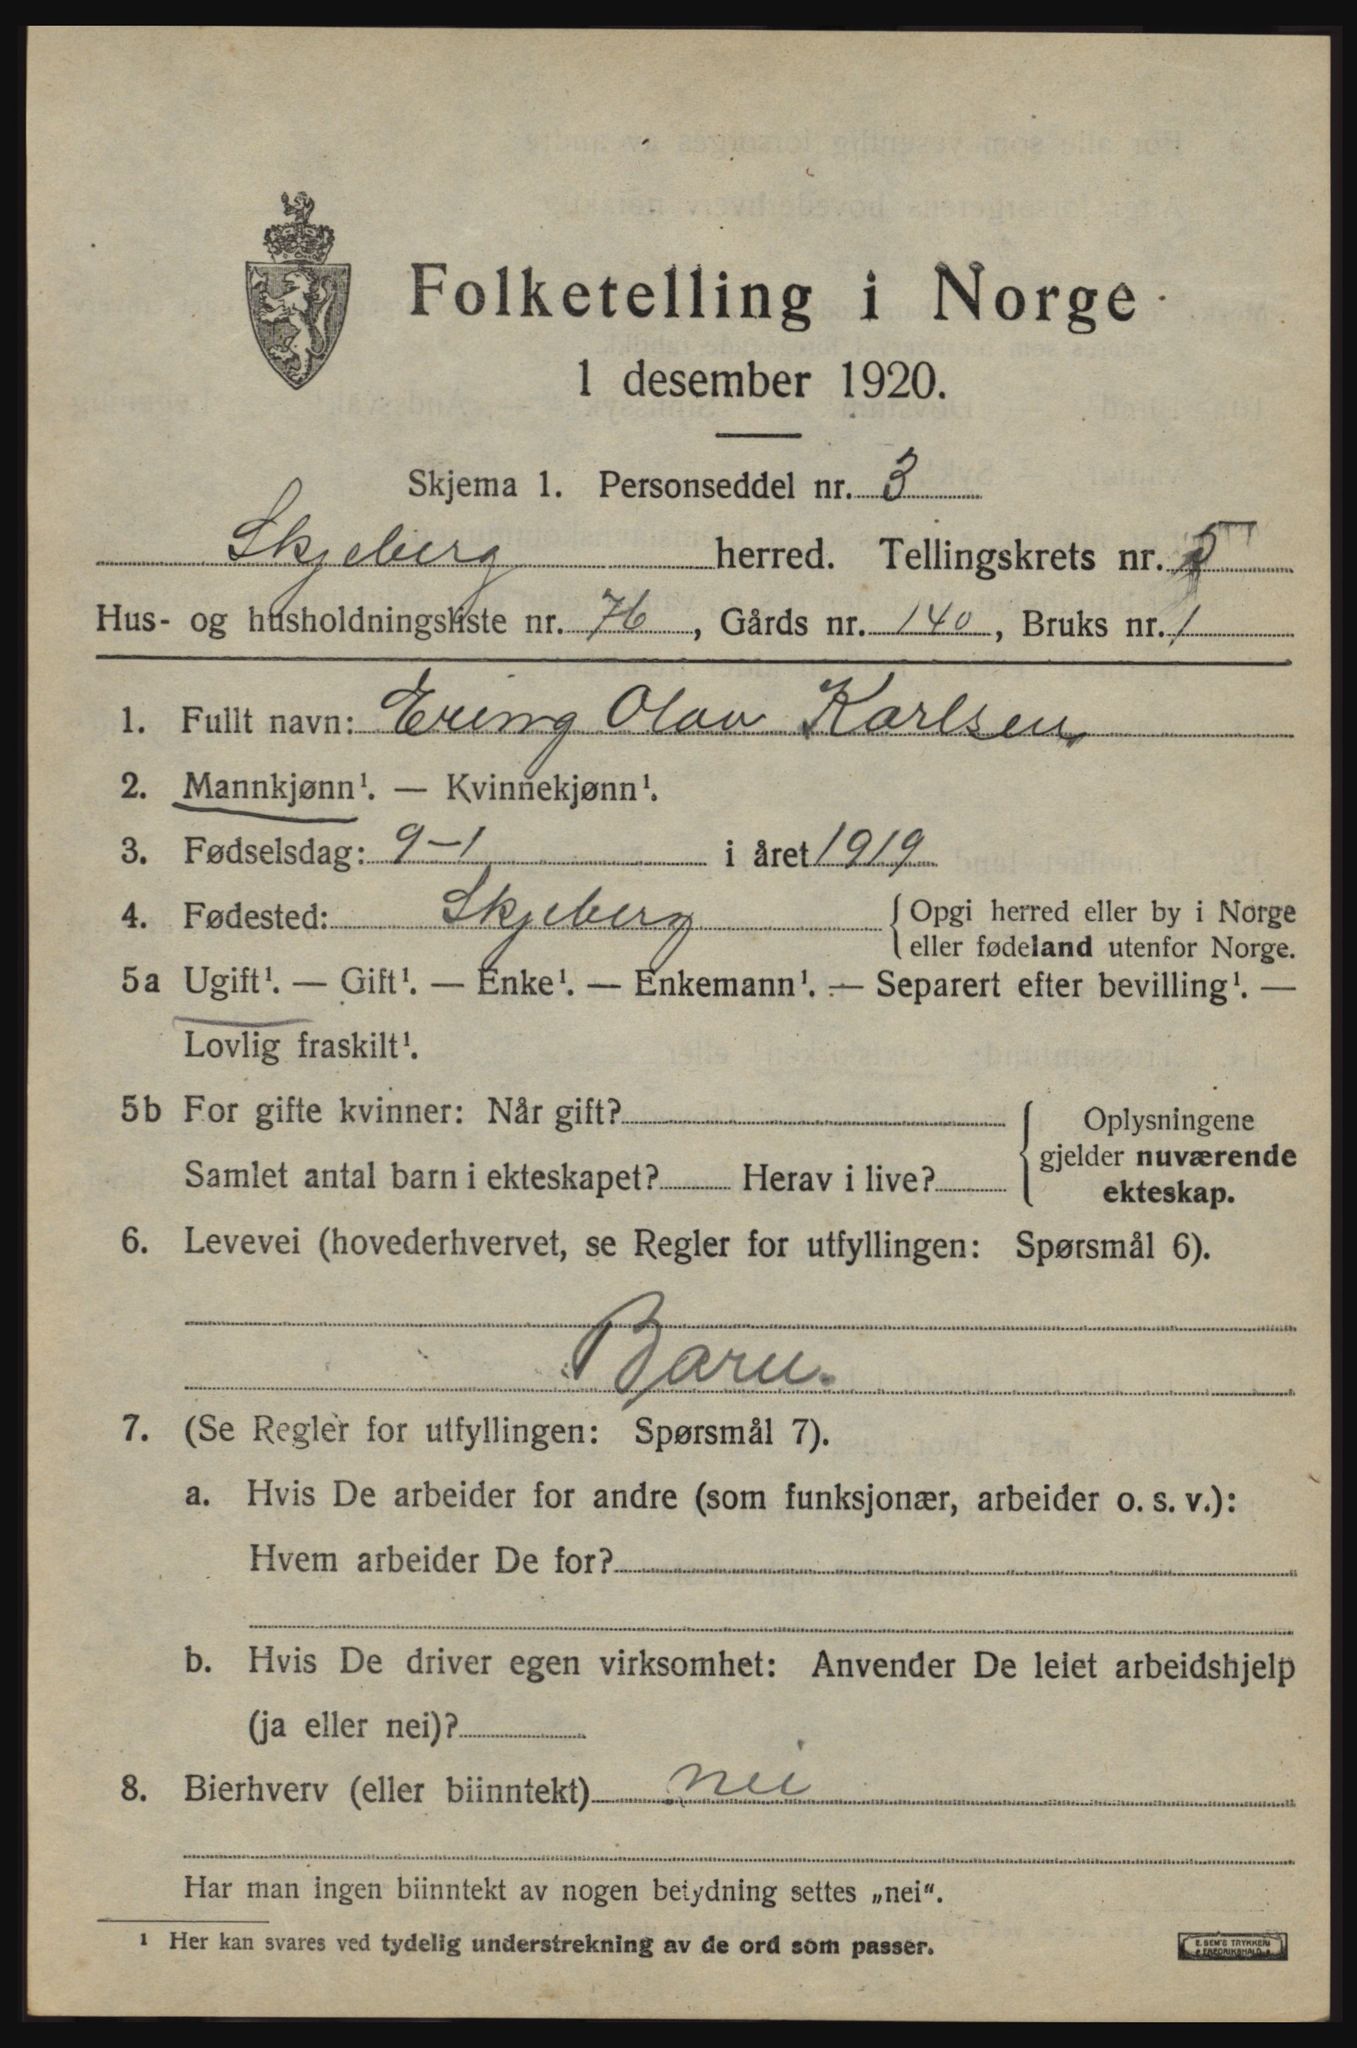 Folketelling i Norge
1 desember 1920.
Skjema 1. Personseddel nr. 3
Skjeberg herred. Tellingskrets nr. 5
Hus- og husholdningsliste nr. 76, Gårds nr. 140, Bruks nr. 1
1. Fullt navn: Ering Olav Karlsen
2. Mannkjønn¹. — Kvinnekjønn¹.
3. Fødselsdag: 9-1 i året 1919
4. Fødested: Skjeberg {Opgi herred eller by i Norge
eller fødeland utenfor Norge.
5a Ugift¹. — Gift¹. — Enke¹. — Enkemann¹. — Separert efter bevilling¹. —
Lovlig fraskilt¹.
5b For gifte kvinner: Når gift?
Samlet antal barn i ekteskapet? Herav i live?
Oplysningene
gjelder nuværende
ekteskap.
6. Levevei (hovederhvervet, se Regler for utfyllingen: Spørsmål 6).
Barn.
7. (Se Regler for utfyllingen: Spørsmål 7).
a. Hvis De arbeider for andre (som funksjonær, arbeider o. s. v.):
Hvem arbeider De for?
b. Hvis De driver egen virksomhet: Anvender De leiet arbeidshjelp
(ja eller nei)?
8. Bierhverv (eller biinntekt) nei
Har man ingen biinntekt av nogen betydning settes „nei".
¹ Her kan svares ved tydelig understrekning av de ord som passer.
E. SEM'S TRYKKERI
FREDRIKSHALD